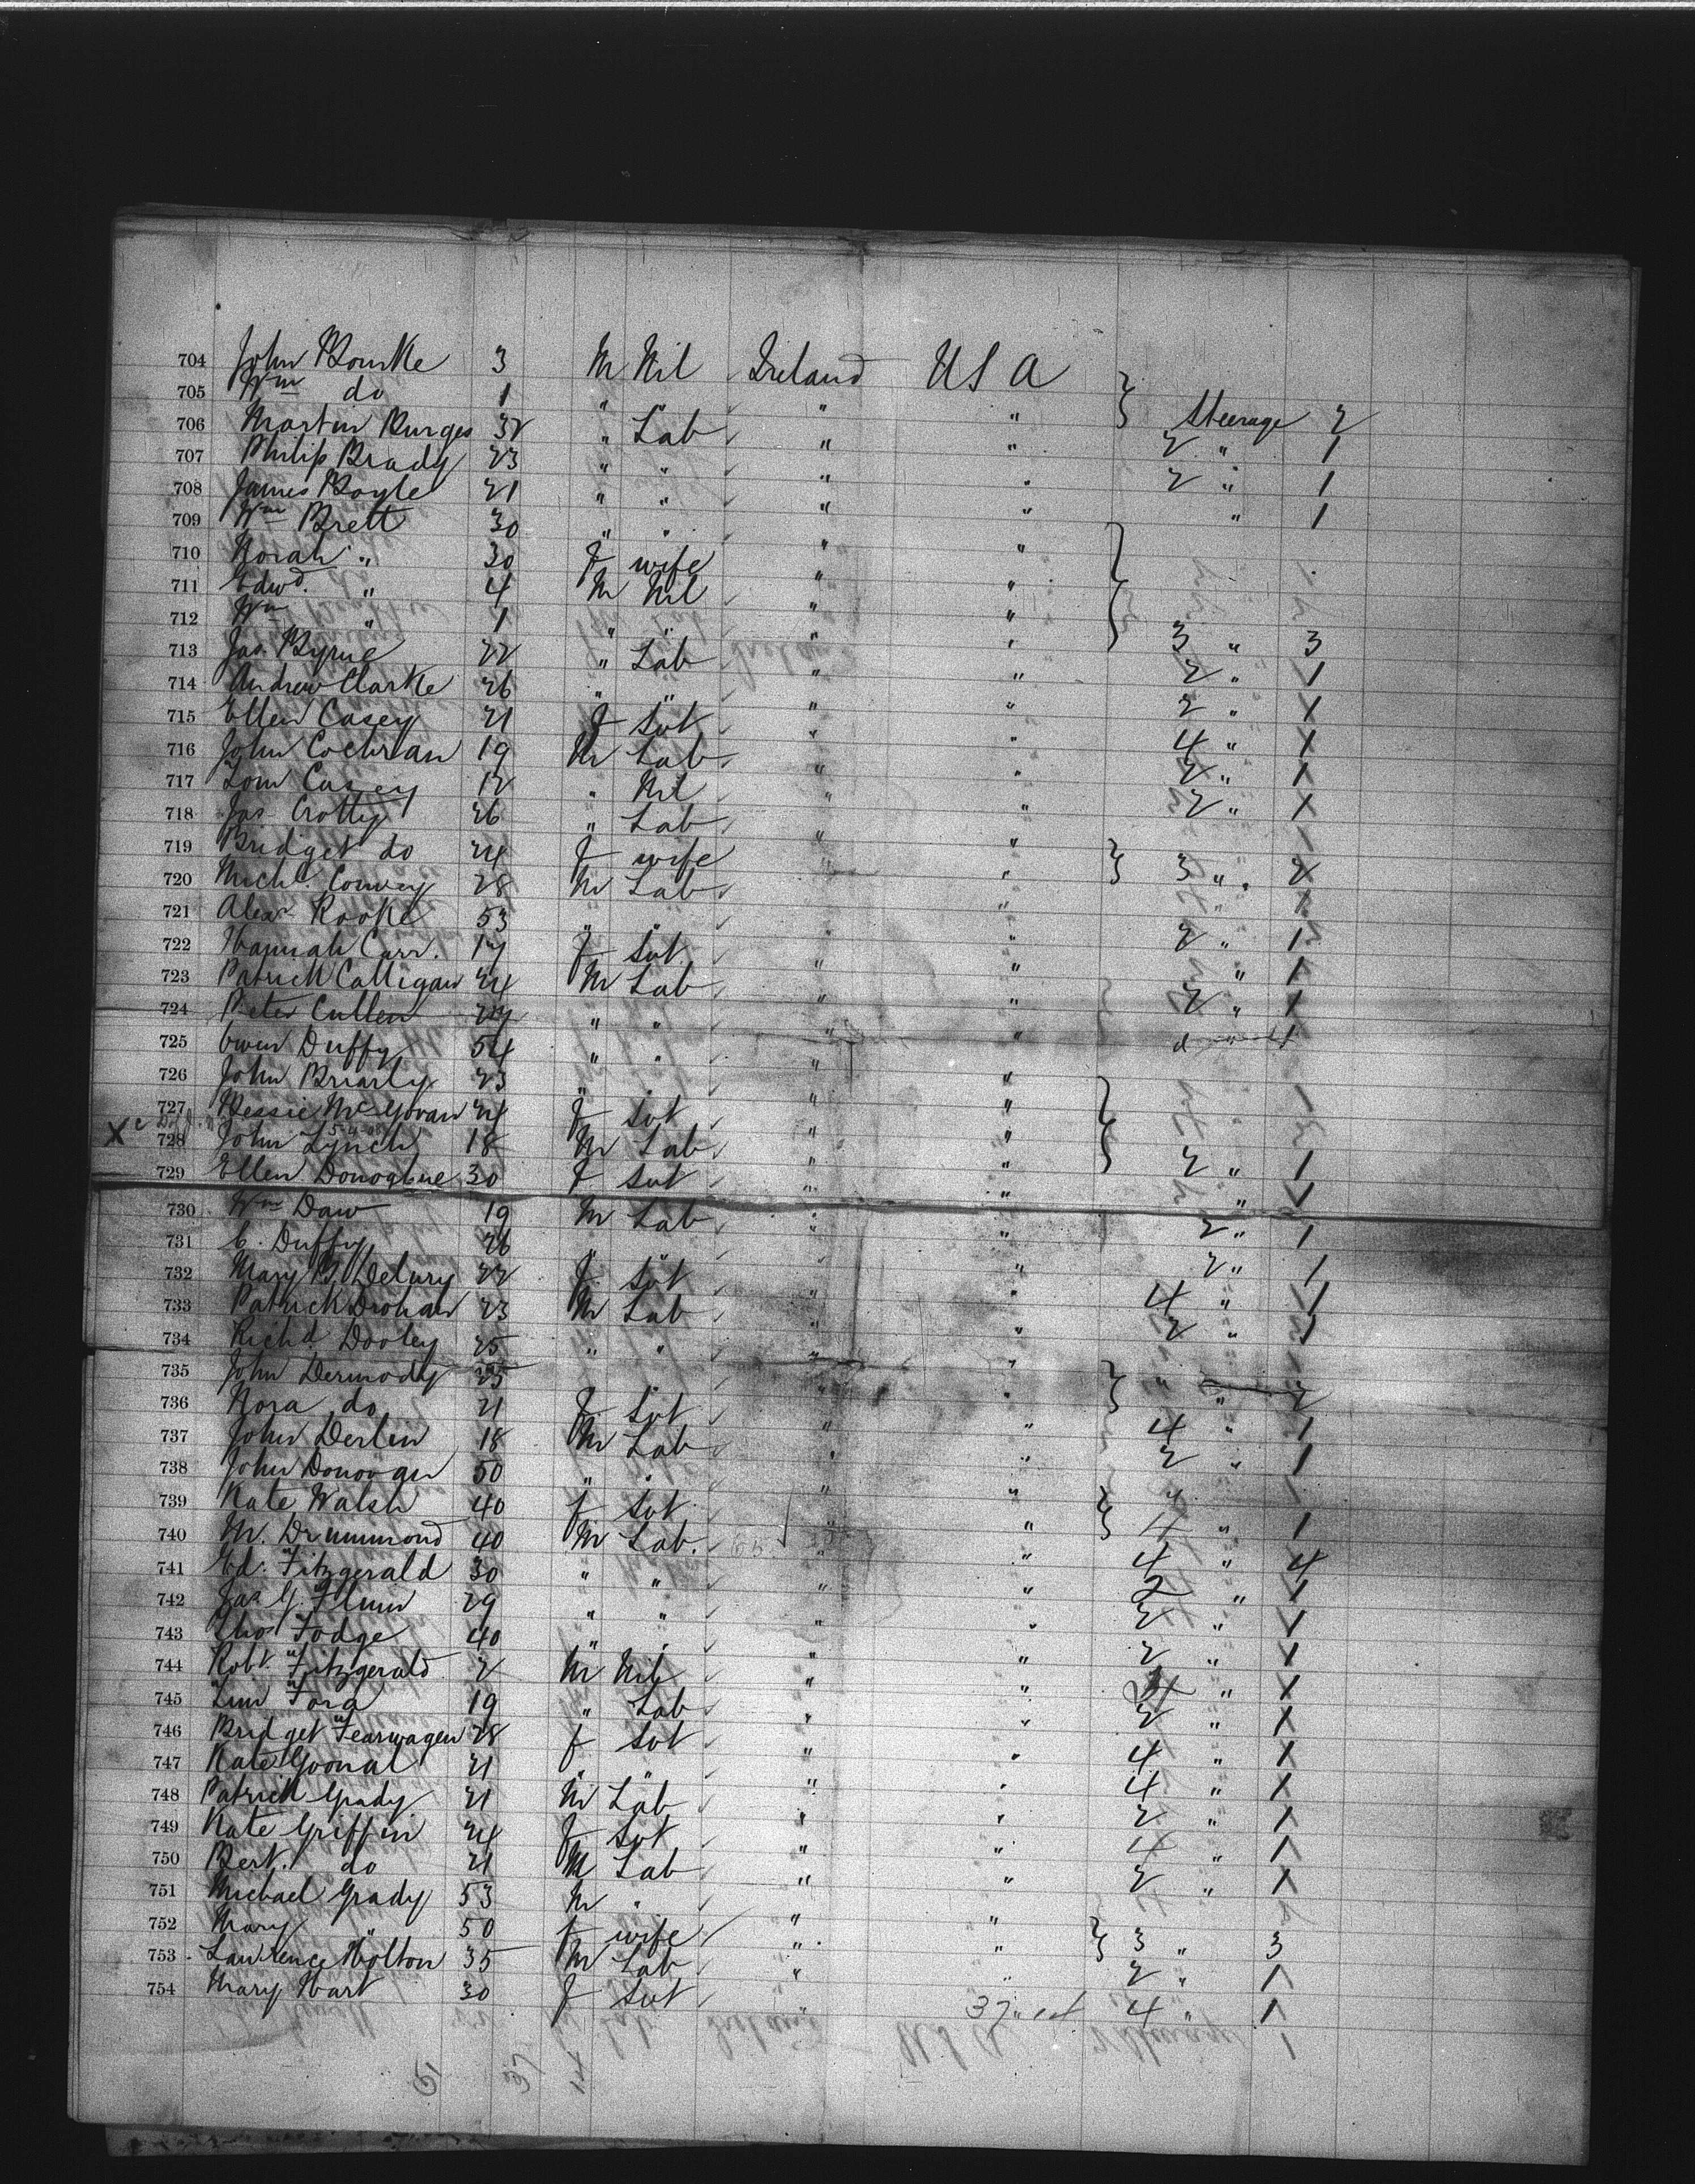 704 John Bourke 3 M Nil Ireland USA
705 Wm do 1 " " " Steerage 2
706 Martin Burges 32 " Lab " " 2 " 1
707 Philip Brady 23 " " " " 2 " 1
708 James Boyle 21 " " " " " 1
709 Wm Brett 30 " " " "
710 Norah " 30 F wife " "
711 Edwd. " 4 M Nil " "
712 Wm " 1 " " " " 3 " 3
713 Jas. Byrne 22 " Lab " " 2 " 1
714 Andrew Clarke 26 " " " " 2 " 1
715 Ellen Casey 21 F Svt " " 4 " 1
716 John Cochran 19 M Lab " " 2 " 1
717 Tom Casey 12 " Nil " " 2 " 1
718 Jas Crotty 26 " Lab " "
719 Bridget do 24 F wife " " 3 " 2
720 Michl. Convey 28 M Lab " " " 1
721 Alexr Rooke 53 " " " " 2 " 1
722 Hannah Carr. 17 F Svt " " " 1
723 Patrick Calligan 24 M Lab " " 2 " 1
724 Peter Cullen 24 " " " " " 1
725 Owen Duffy 54 " " " "
726 John Briarly 23 " " "
727 Bessie McGovran 24 F Svt " "
X 728 John Lynch 18 M Lab " " 2 " 1
729 Ellen Donoghue 30 F Svt " " " 1
730 Wm Daw 19 M Lab " " 2 " 1
731 C. Duffy 26 " " " " 2 " 1
732 Mary B. Delury 22 F Svt " " 4 " 1
733 Patrick Drohan 23 M Lab " " 2 " 1
734 Richd Dooley 25 " " " "
735 John Dermody 25 " " " 2
736 Nora do 21 F Svt " " 4 " 1
737 John Derlin 18 M Lab " " 2 " 1
738 John Donovan 50 " " " "
739 Kate Walsh 40 F Svt " " 4 " 1
740 M. Drummond 40 M Lab. " " 4 " 4
741 Ed. Fitzgerald 30 " " " " 2 " 1
742 Jas G. Flinn 29 " " " " 2 " 1
743 Thos Fodge 40 " " " " 2 " 1
744 Robt. Fitzgerald 2 M Nil " " " 1
745 Fora 19 " Lab " " 2 " 1
746 Bridget Fearwagen 28 F Svt " " 4 " 1
747 Kate Goonal 21 " " " " 4 " 1
748 Patrick Grady 21 M Lab " " 2 " 1
749 Kate Griffin 24 F Svt " " 4 " 1
750 Bert. do 21 M Lab " " 2 " 1
751 Michael Grady 53 M " " "
752 Mary " 50 F wife " " 3 " 3
753 Lawrence Holton 35 M Lab " " 2 " 1
754 Mary Hart 30 F Svt " 4 " 1